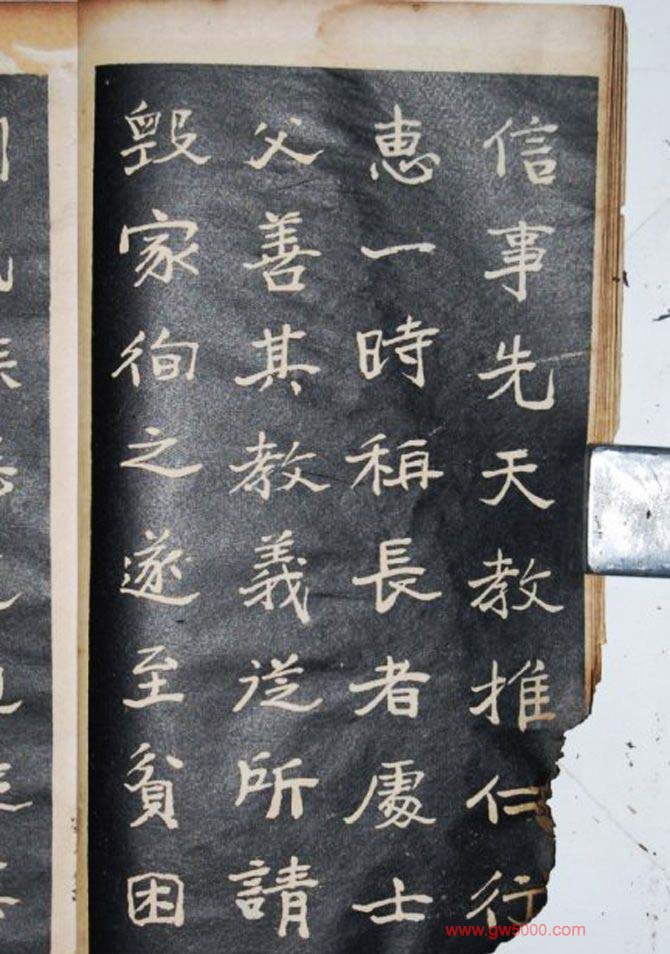 信事先天教推仁行
惠一時稱長者處士
父善其教義従所請
毀家徇之遂至貧困
www.gw5000.com